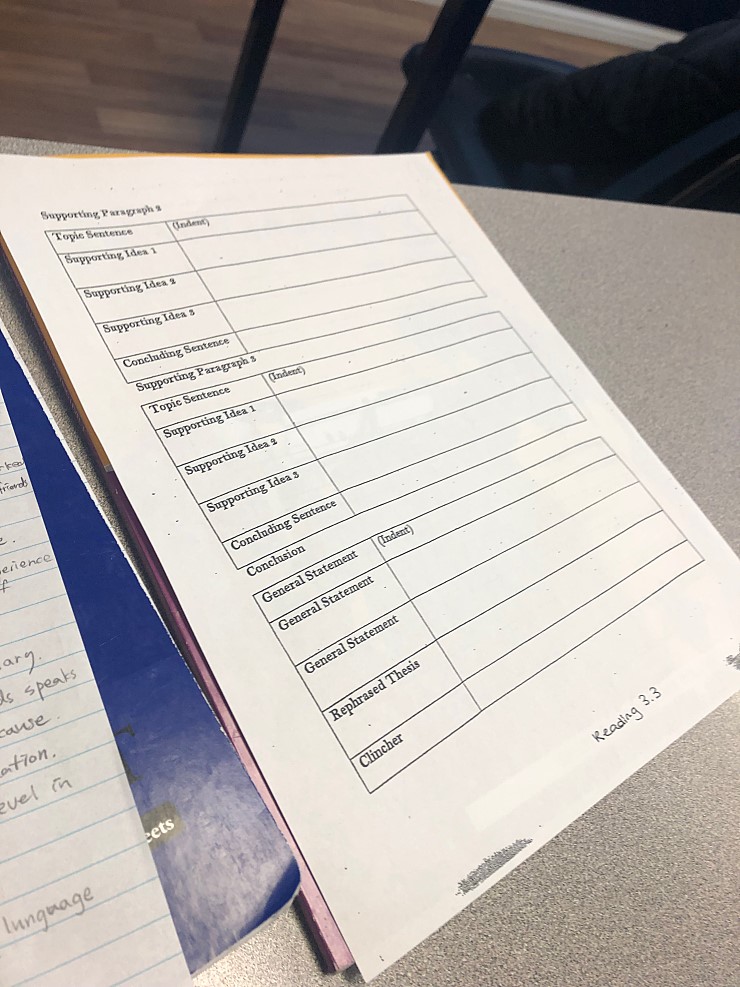 Supporting Paragraph 2
Topic Sentence (Indent)
Supporting Idea 1
Supporting Idea 2
Supporting Idea 3
Concluding Sentence
Supporting Paragraph 3
Topic Sentence (Indent)
Supporting Idea 1
Supporting Idea 2
Supporting Idea 3
Concluding Sentence
Conclusion
General Statement (Indent)
General Statement
General Statement
Rephrased Thesis
Clincher
Reading 3.3
friends
erience
ary.
ds speaks
cause.
ation.
evel in
lunguage
eets